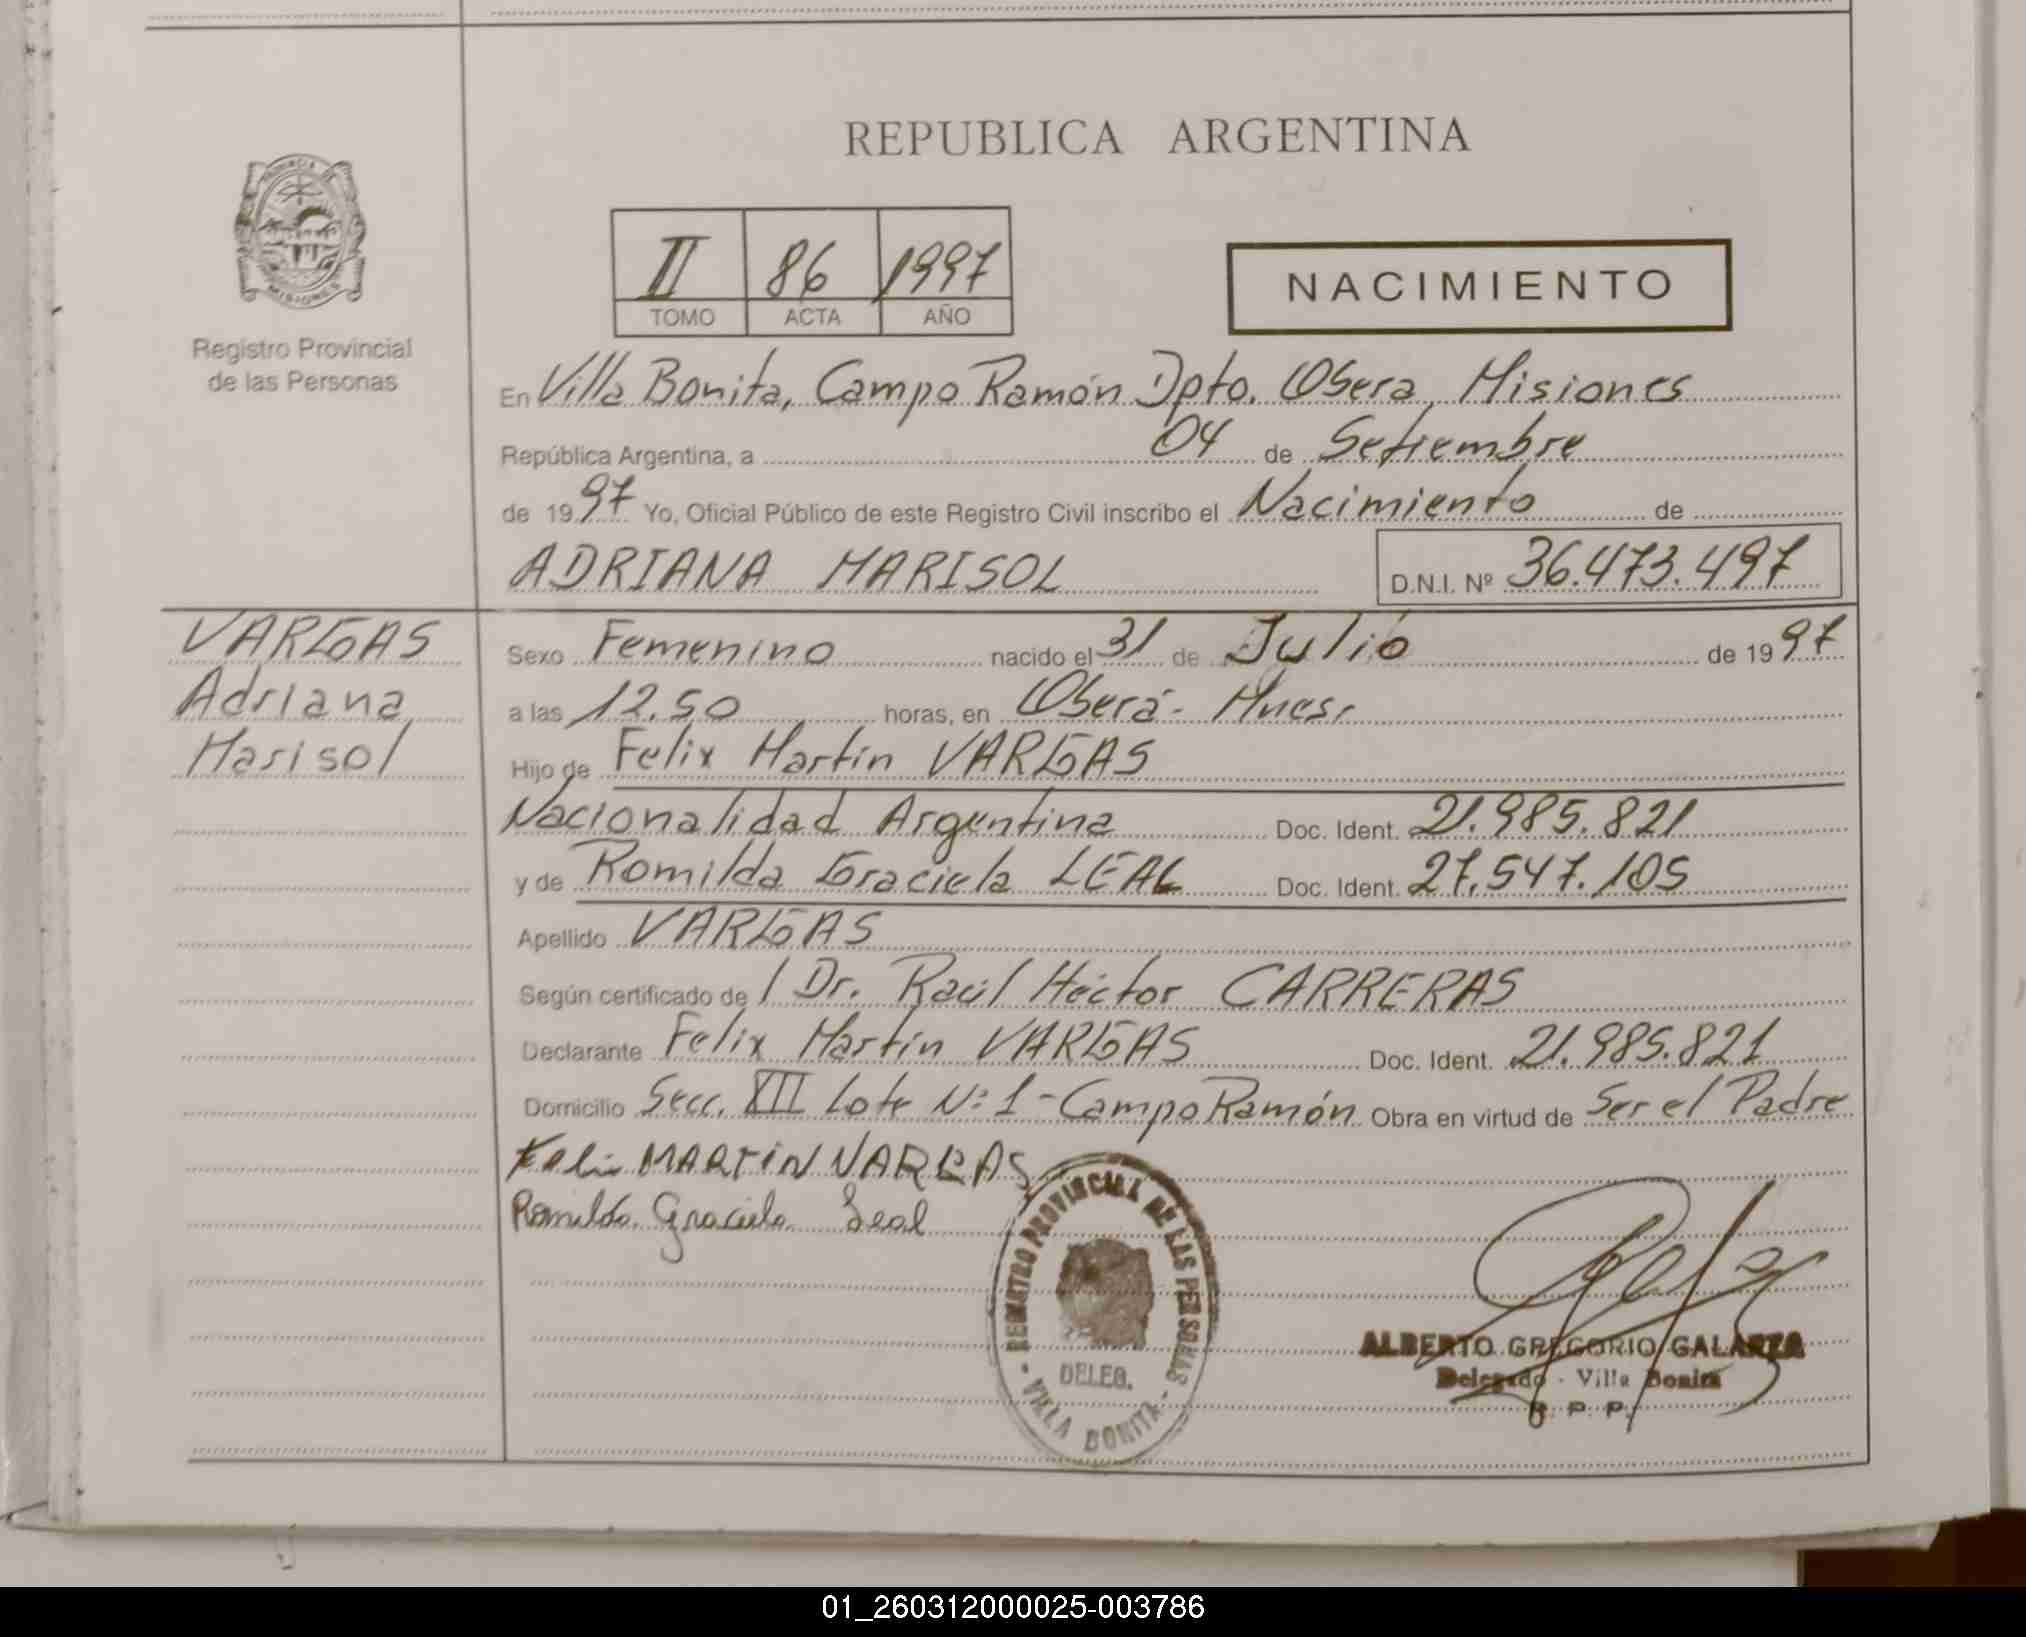 REPUBLICA ARGENTINA
PROVINCIA DE MISIONES
Registro Provincial
de las Personas
II 86 1997
TOMO ACTA AÑO
NACIMIENTO
En Villa Bonita, Campo Ramón Dpto. Obera, Misiones
República Argentina, a 04 de Setiembre
de 1997 Yo, Oficial Público de este Registro Civil inscribo el Nacimiento de
ADRIANA MARISOL D.N.I. Nº 36.473.497
VARGAS
Adriana
Marisol
Sexo Femenino nacido el 31 de Julio de 1997
a las 12.50 horas, en Oberá - Mnes.
Hijo de Felix Martín VARGAS
Nacionalidad Argentina Doc. Ident. 21.985.821
y de Romilda Graciela LEAL Doc. Ident. 27.547.105
Apellido VARGAS
Según certificado de / Dr. Raúl Héctor CARRERAS
Declarante Felix Martín VARGAS Doc. Ident. 21.985.821
Domicilio Secc. XIII Lote Nº 1 - Campo Ramón Obra en virtud de Ser el Padre
Felix MARTIN VARGAS
Romilda Graciela Leal
REGISTRO PROVINCIAL DE LAS PERSONAS
DELEG.
- VILLA BONITA -
ALBERTO GREGORIO GALARZA
Delegado - Villa Bonita
R. P. P.
01_260312000025-003786